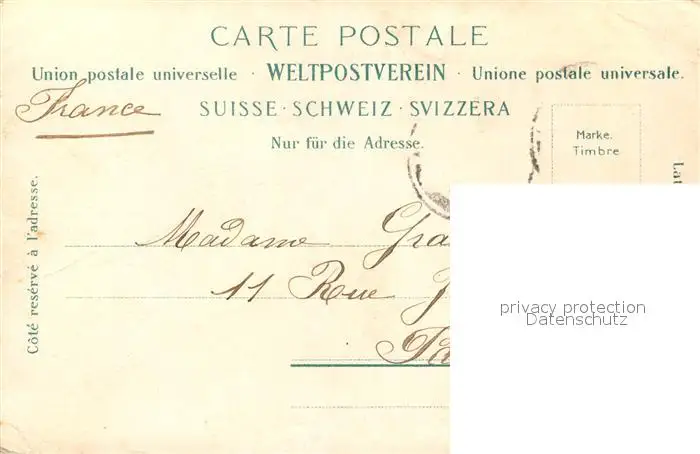 CARTE POSTALE
Union postale universelle · WELTPOSTVEREIN · Unione postale universale.
France
SUISSE · SCHWEIZ · SVIZZERA
Nur für die Adresse.
Marke.
Timbre
Côté resérvé à l'adresse.
Madame
11 Rue
privacy protection
Datenschutz